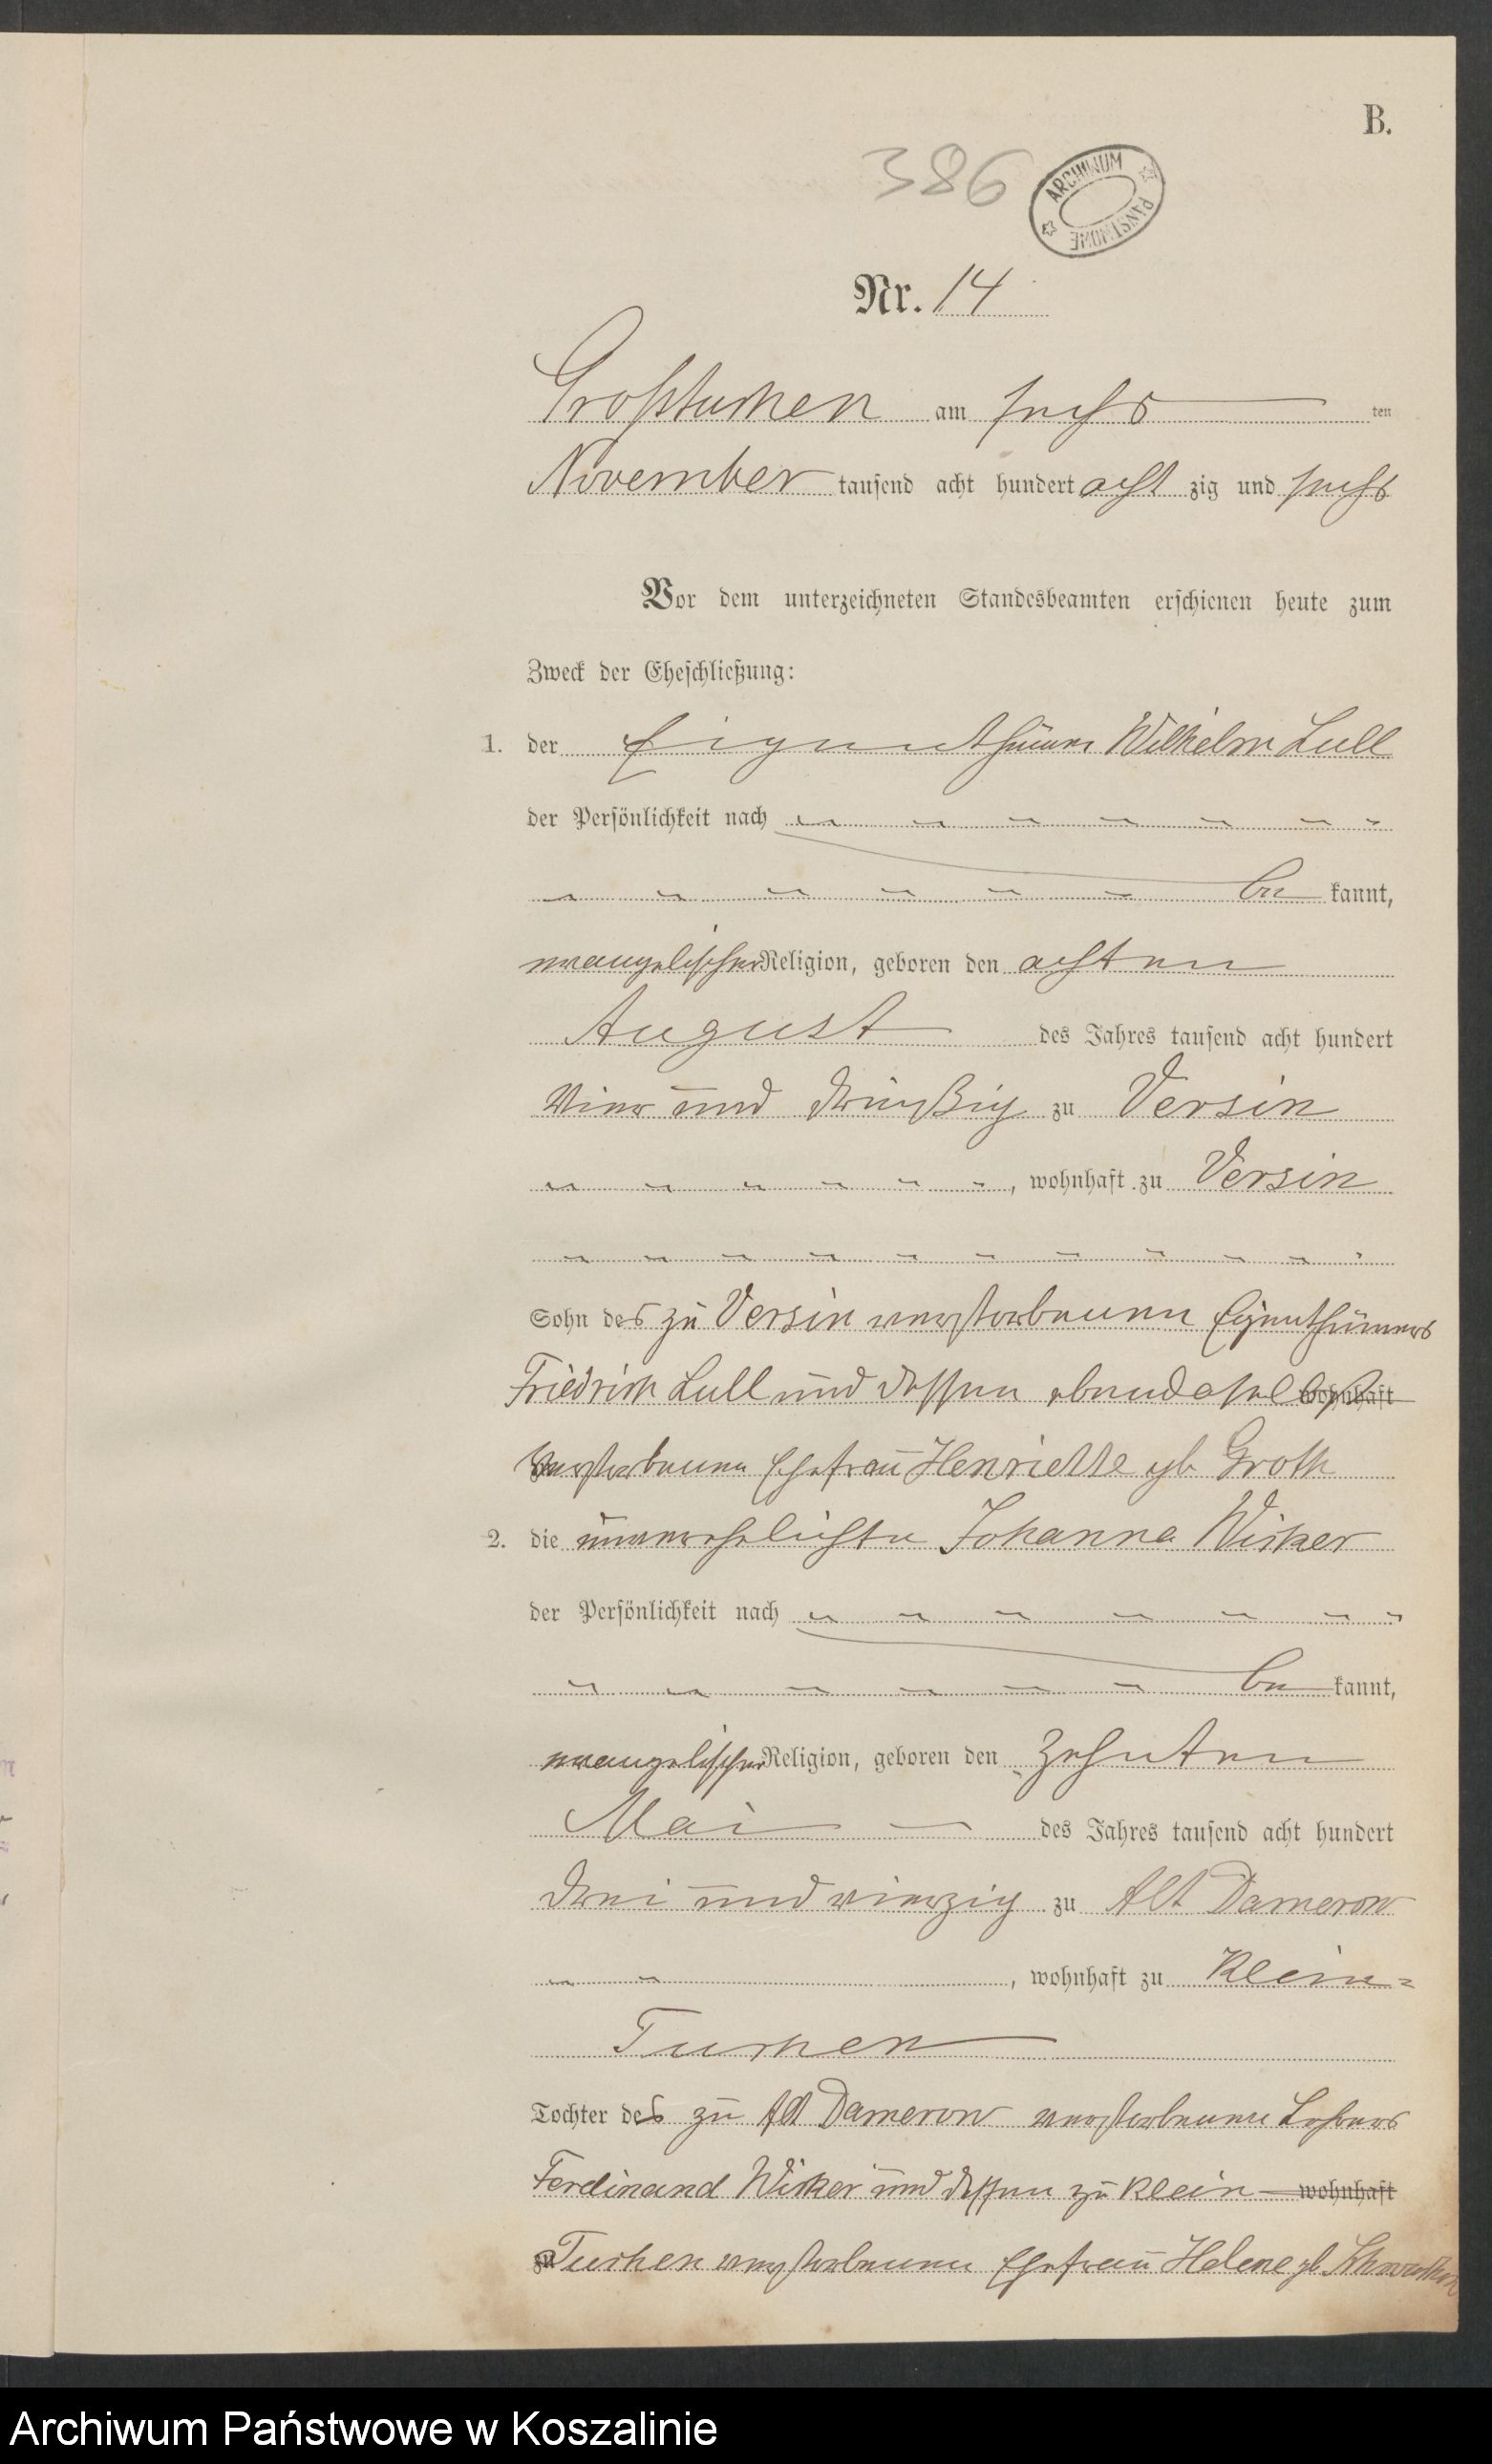 B.
386
ARCHIWUM PAŃSTWOWE
Nr. 14
Großtuchen am sechs ten
November tausend acht hundert acht zig und sechs
Vor dem unterzeichneten Standesbeamten erschienen heute zum
Zweck der Eheschließung:
1. der Eigenthümer Wilhelm Lull
der Persönlichkeit nach
be kannt,
evangelischer Religion, geboren den achten
August des Jahres tausend acht hundert
vier und dreißig zu Versin
, wohnhaft zu Versin
Sohn des zu Versin verstorbenen Eigenthümers
Friedrich Lull und dessen ebendaselbst wohnhaft
verstorbenen Ehefrau Henriette geb Groth
2. die unverehelichte Johanna Wicker
der Persönlichkeit nach
be kannt,
evangelischer Religion, geboren den zehnten
Mai des Jahres tausend acht hundert
drei und vierzig zu Alt Damerow
, wohnhaft zu Klein=
Tuchen
Tochter des zu Alt Damerow verstorbenen Lehrers
Ferdinand Wicker und dessen zu Klein wohnhaft
zu Tuchen verstorbenen Ehefrau Helene gb
Archiwum Państwowe w Koszalinie